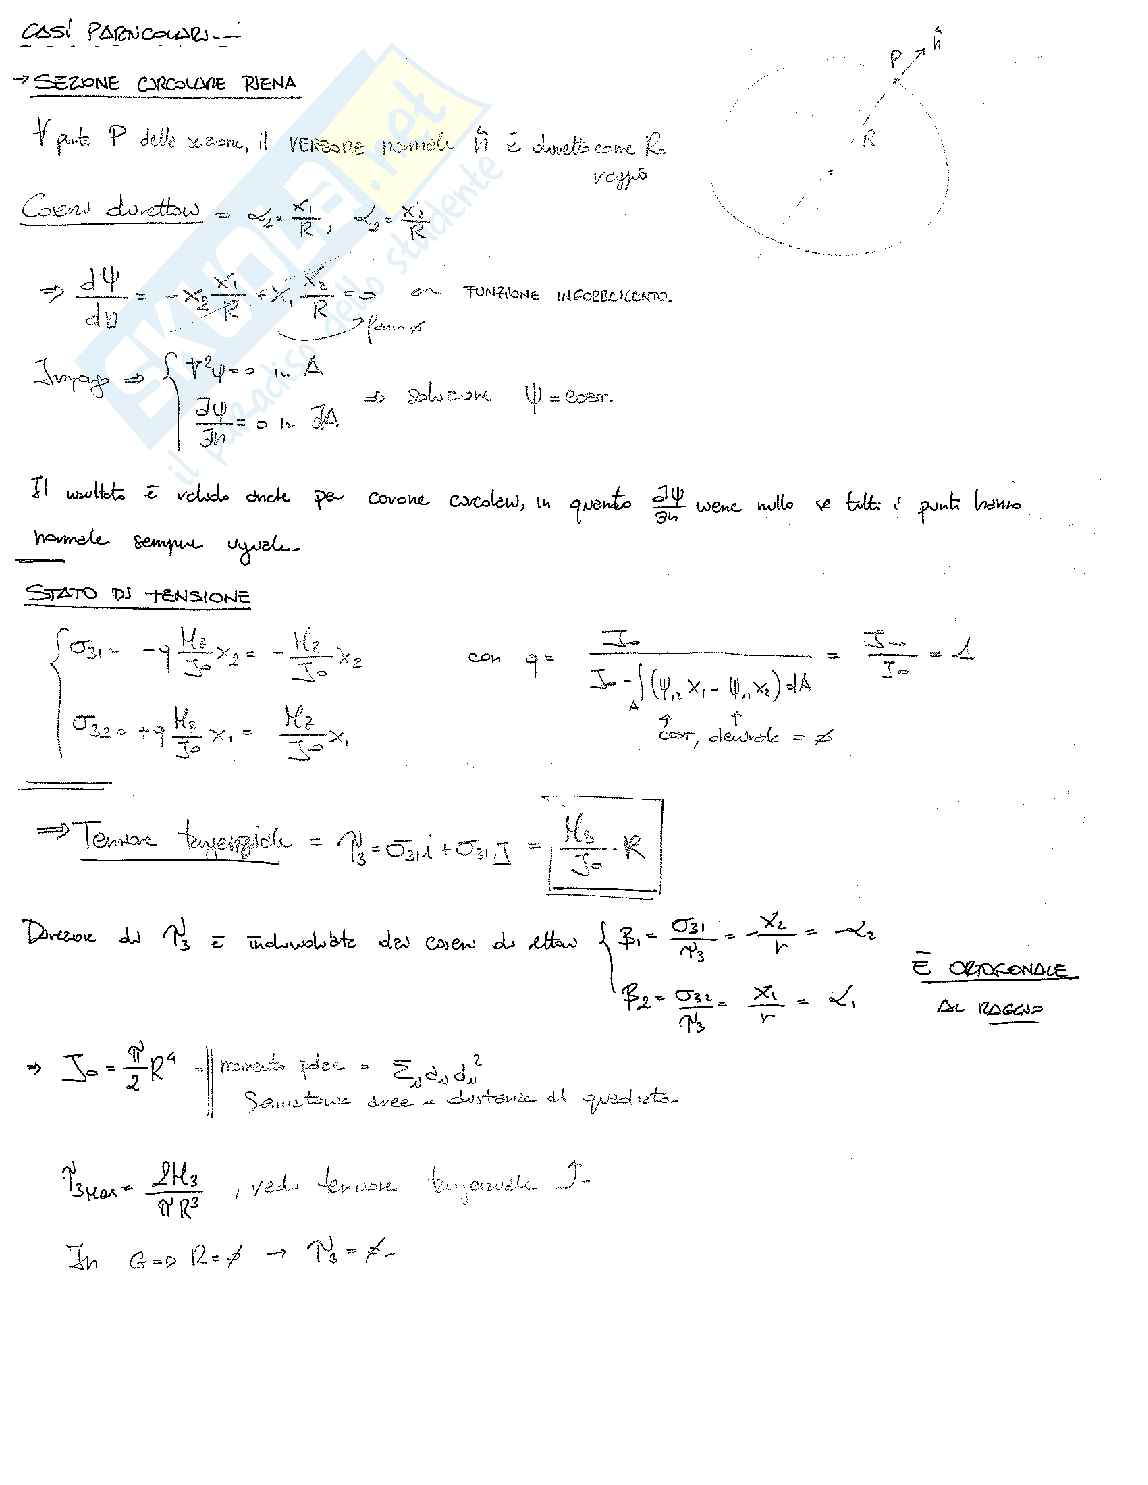 CASI PARTICOLARI
→ SEZIONE CIRCOLARE PIENA
P
n̂
R
∀ punto P della sezione, il VERSORE normale n̂ è diretto come R
raggio
Coseni direttori = α₁ = x₁/R, α₂ = x₂/R
⇒ dψ/dn = -x₂ x₁/R + x₁ x₂/R = 0
FUNZIONE INGOBBAMENTO.
⇒ { ∇²ψ = 0 in A
∂ψ/∂n = 0 in ∂A
⇒ soluzione ψ = cost.
Il risultato è valido anche per corone circolari, in quanto ∂ψ/∂n viene nullo se tutti i punti hanno
normale sempre uguale.
STATO DI TENSIONE
σ₃₁ = -q M₃/J₀ x₂ = - M₃/J₀ x₂
con q = J₀ / (J₀ - ∫_A (ψ,₂ x₁ - ψ,₁ x₂) dA) = J₀/J₀ = 1
σ₃₂ = +q M₃/J₀ x₁ = M₃/J₀ x₁
cost, derivate = ∅
⇒ Tensione tangenziale = τ₃ = σ₃₁ i + σ₃₁ J = M₃/J₀ · R
Direzione di τ₃ è individuata dai coseni direttori { β₁ = σ₃₁/τ₃ = -x₂/r = -α₂
β₂ = σ₃₂/τ₃ = x₁/r = α₁
È ORTOGONALE
AL RAGGIO
⇒ J₀ = π/2 R⁴
momento polare =
Sommatoria aree × distanze al quadrato.
τ₃Max = 2M₃/πR³, vedo tensione tangenziale ↑.
In G ⇒ R = ∅ → τ₃ = ∅.
SKUOLA.net
il paradiso dello studente